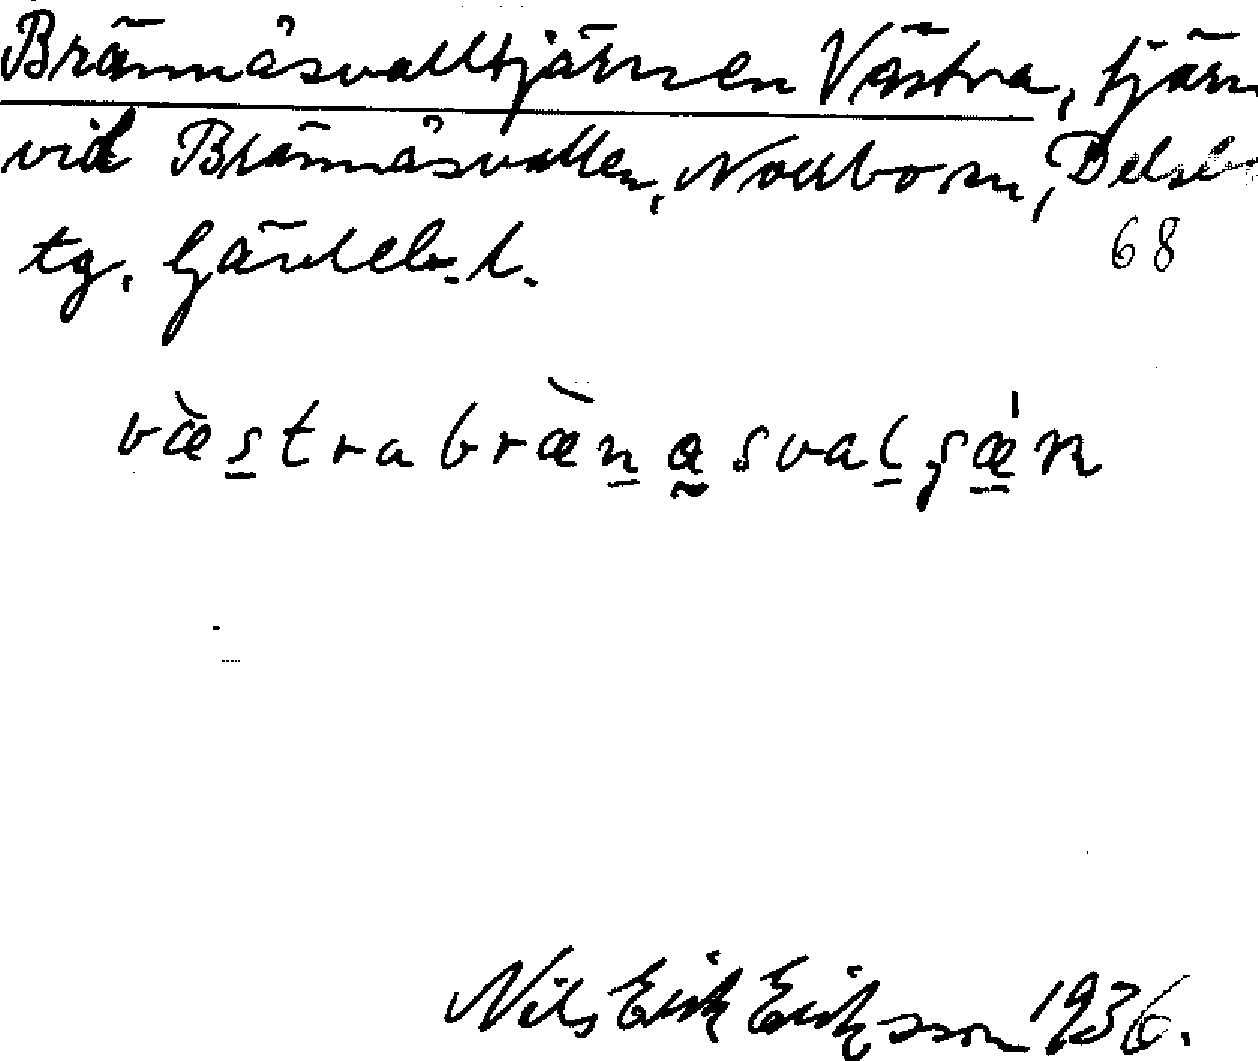 Brännåsvalltjärnen Västra, tjärn
vid Brännåsvallen, Norrbo sn, Delsbo
tg. Fjärdeb. l.
68
væstrabrænasvalsæn
Nils Erik Eriksson 1936.